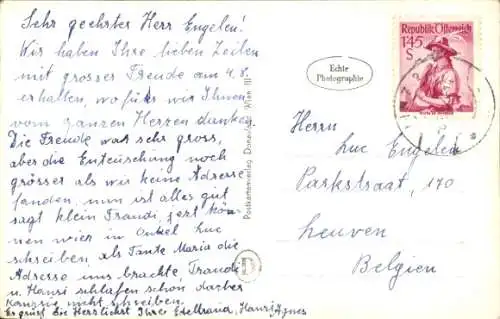 Sehr geehrter Herr Engelen!
Wir haben Ihre lieben Zeilen
mit grosser Freude am 4.8.
erhalten, wofür wir Ihnen
vom ganzen Herzen danken.
Die Freude war sehr gross,
aber die Enteuschung noch
grösser als wir keine Adresse
fanden, nun ist alles gut
sagt klein Traudi, jezt kön-
nen wir in Onkel Luc
schreiben, als Tante Maria die
Adresse uns brachte, Traudi
u. Hansi schlafen schon daher
können nicht schreiben.
Es grüst Sie Herzlichst Ihre Edeltraud, Hansi, Agnes
Postkartenverlag Donauland, Wien III
Echte
Photographie
Republik Österreich
1'45
S
Herrn
Luc Engelen
Parkstraat, 170
Leuven
Belgien